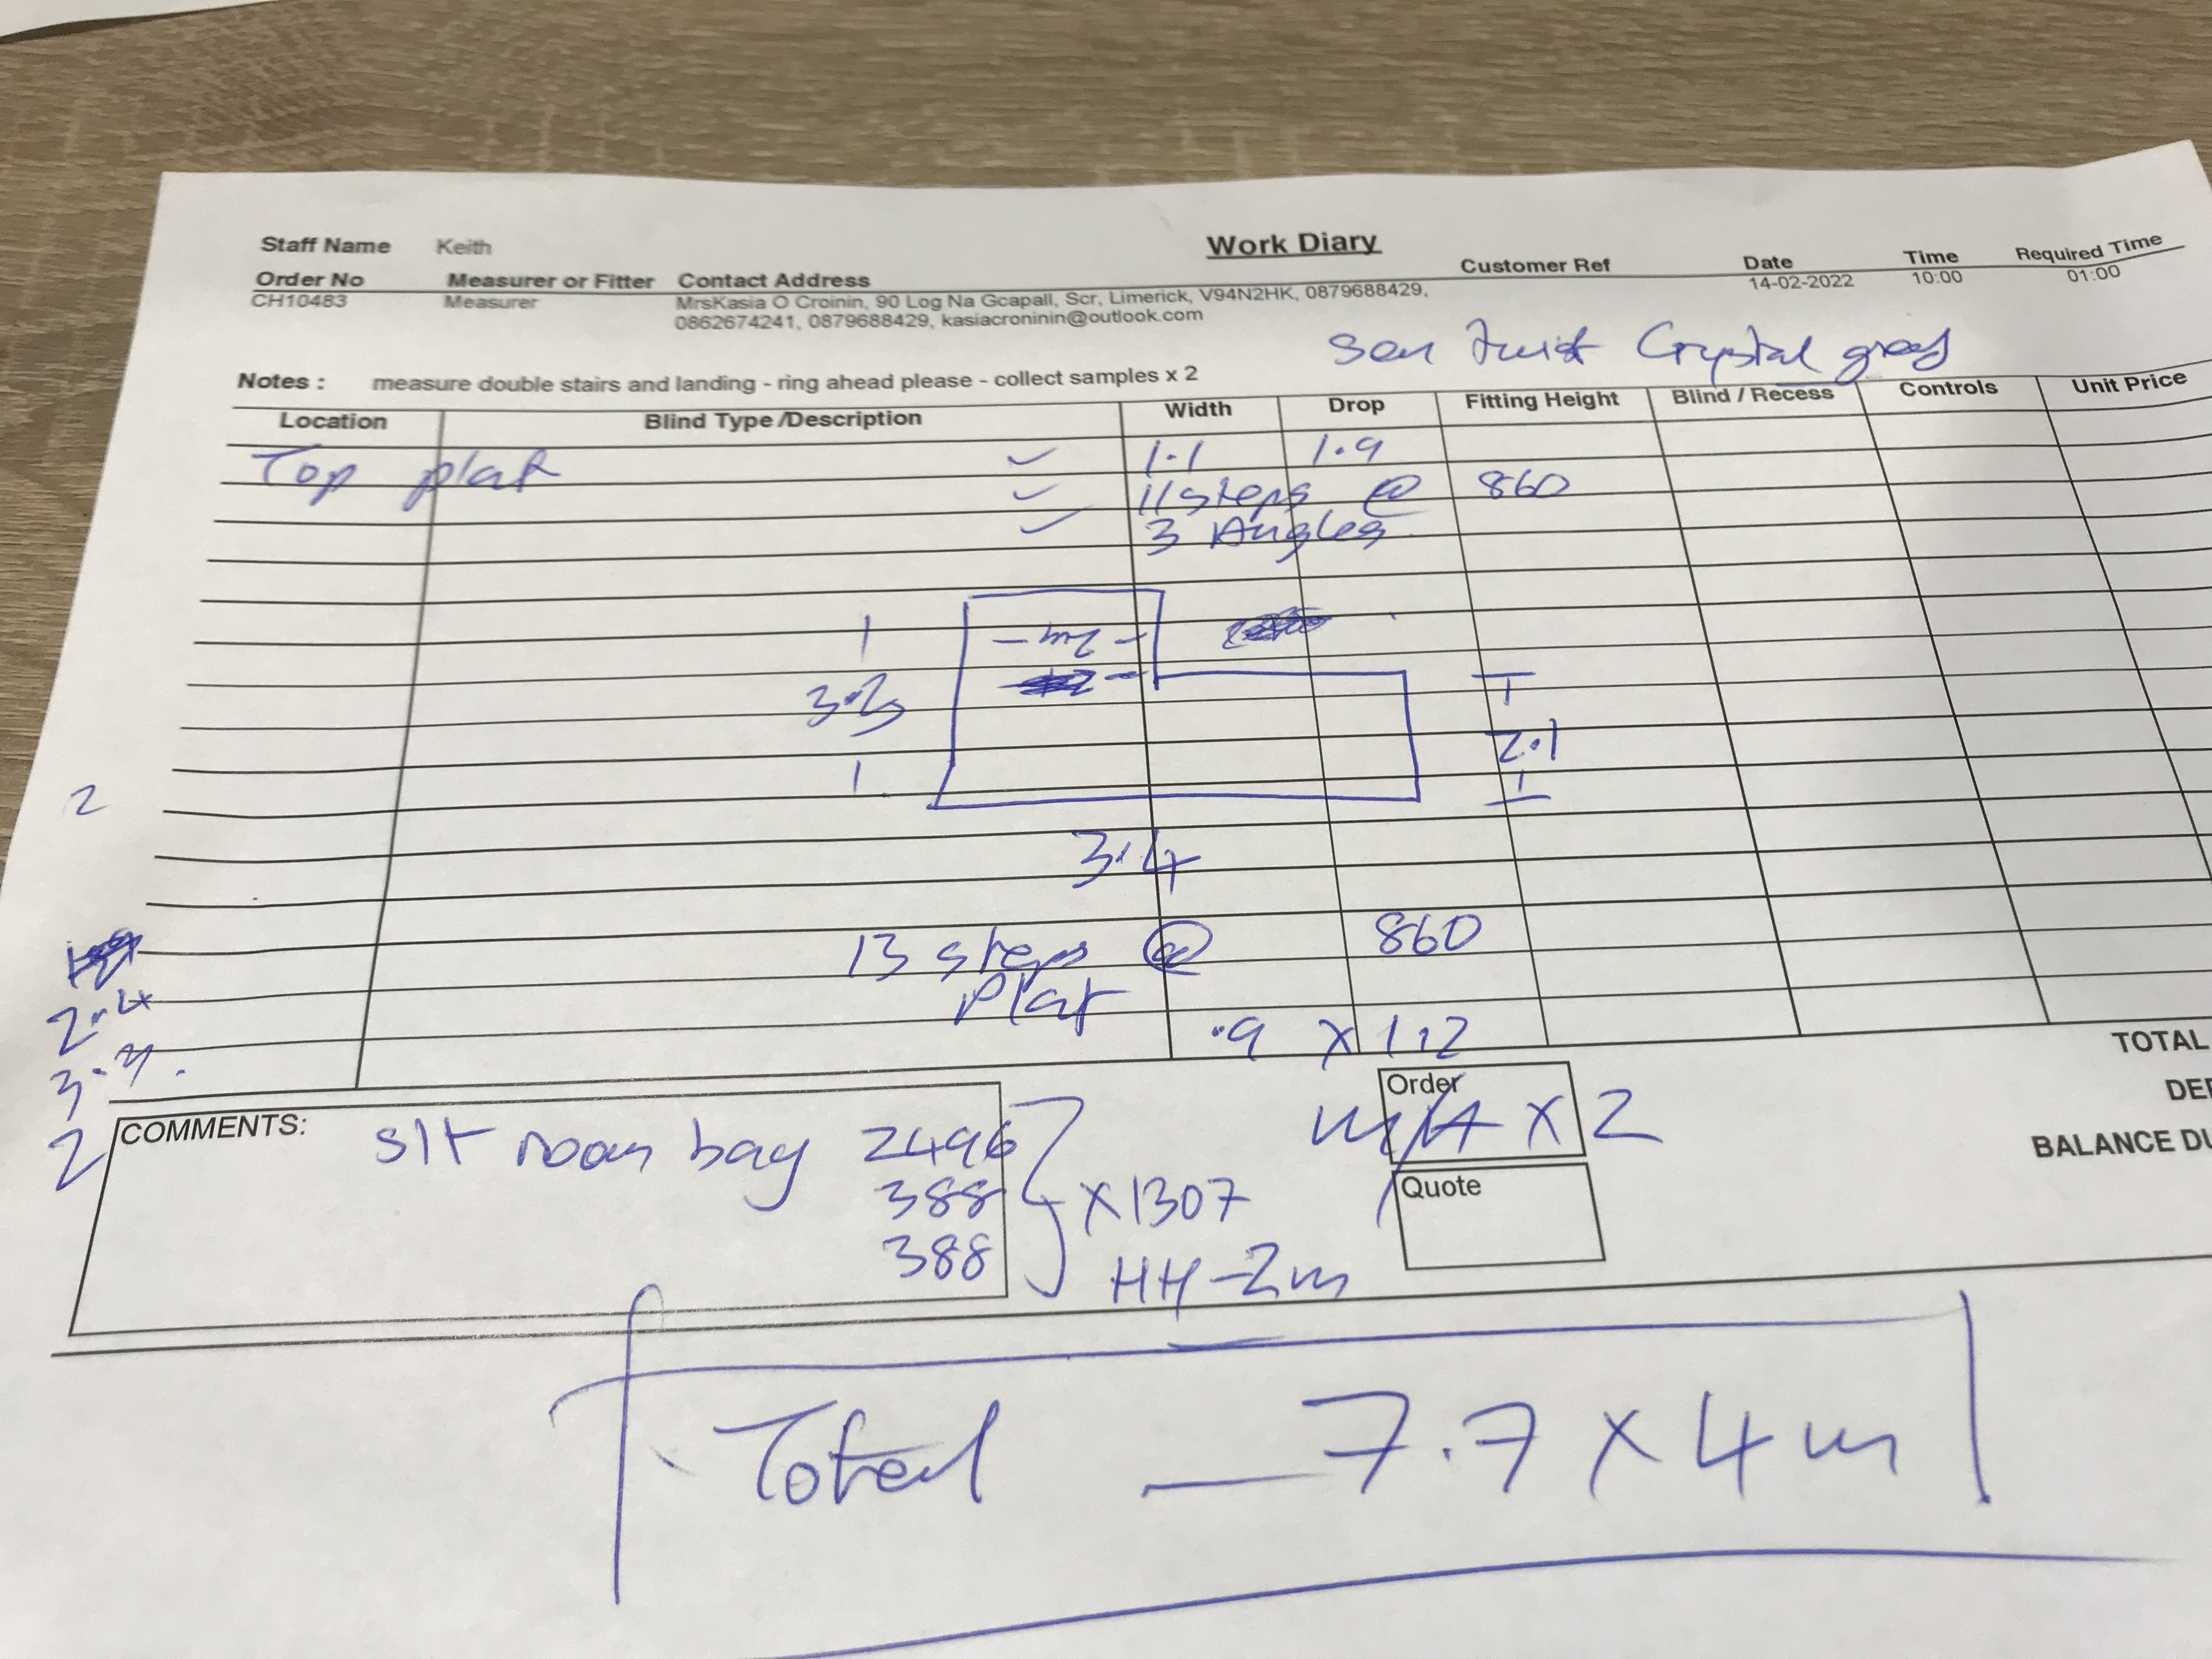 Work Diary
Staff Name Keith
Order No Measurer or Fitter Contact Address Customer Ref Date Time Required Time
CH10483 Measurer MrsKasia O Croinin, 90 Log Na Gcapall, Scr, Limerick, V94N2HK, 0879688429, 14-02-2022 10:00 01:00
0862674241, 0879688429, kasiacroninin@outlook.com
Twist Crystal
Notes : measure double stairs and landing - ring ahead please - collect samples x 2
Location Blind Type /Description Width Drop Fitting Height Blind / Recess Controls Unit Price
Top plat 1.1 1.9
11 steps @ 860
3 Angles
1 - 2m -
3.2
2.1
1
2
3.4
13 steps @ 860
Plat
.9 x 1.2
2.4
2
TOTAL
COMMENTS: sit room bay 2496
388 x 1307
388 HH - 2m
Order
x 2
Quote
BALANCE DU
Total - 7.7 x 4m